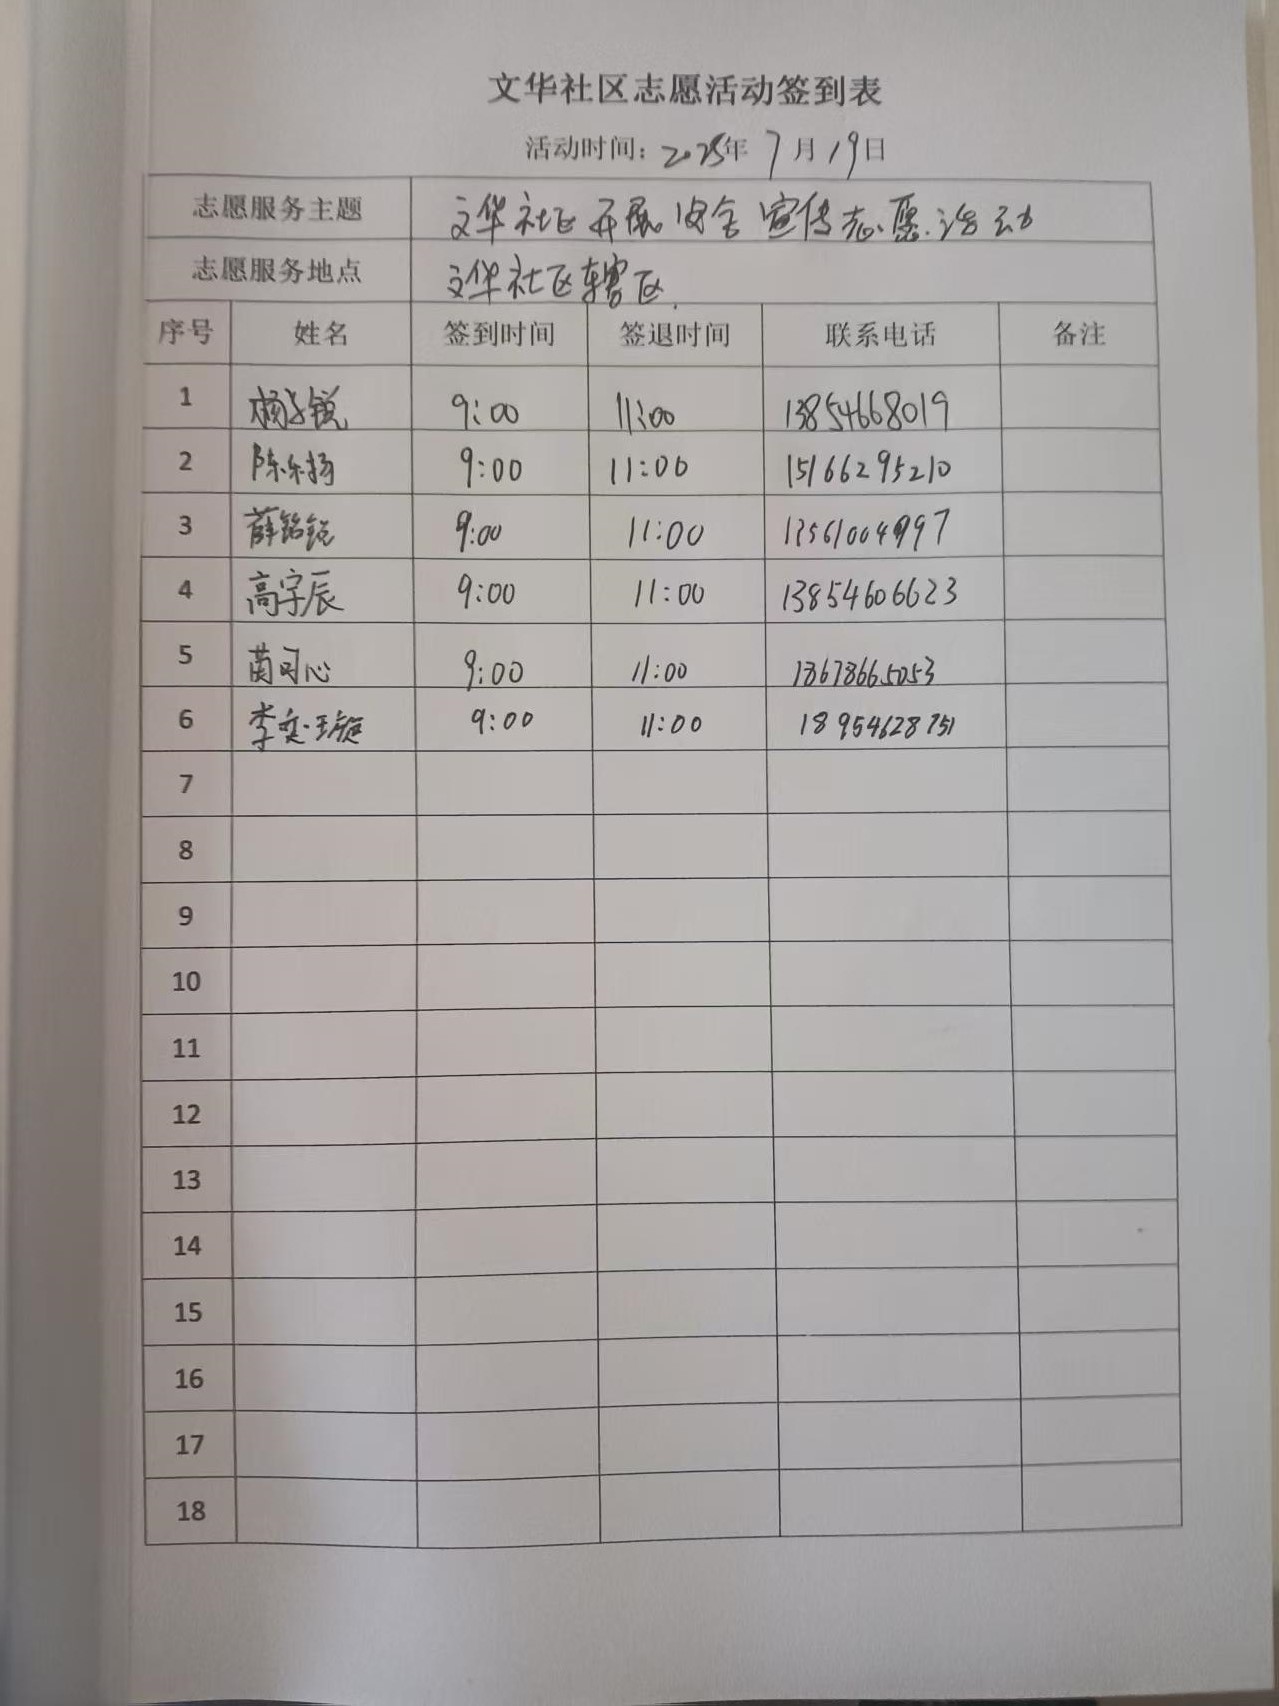 文华社区志愿活动签到表
活动时间：2025年 7月19日
志愿服务主题 文华社区开展安全宣传志愿活动
志愿服务地点 文华社区辖区
序号 姓名 签到时间 签退时间 联系电话 备注
1 杨子锐 9:00 11:00 13854668019
2 陈乐扬 9:00 11:00 15166295210
3 薛铭锐 9:00 11:00 13561004997
4 高宇辰 9:00 11:00 13854606623
5 苟可心 9:00 11:00 18678665053
6 李奕璇 9:00 11:00 18954628751
7
8
9
10
11
12
13
14
15
16
17
18